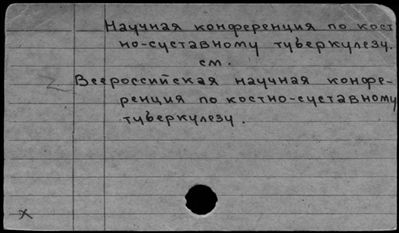 Научная конференция по кост
но-суставному туберкулезу.
см.
Всероссийская научная конфе-
ренция по костно-суставному
туберкулезу.
х